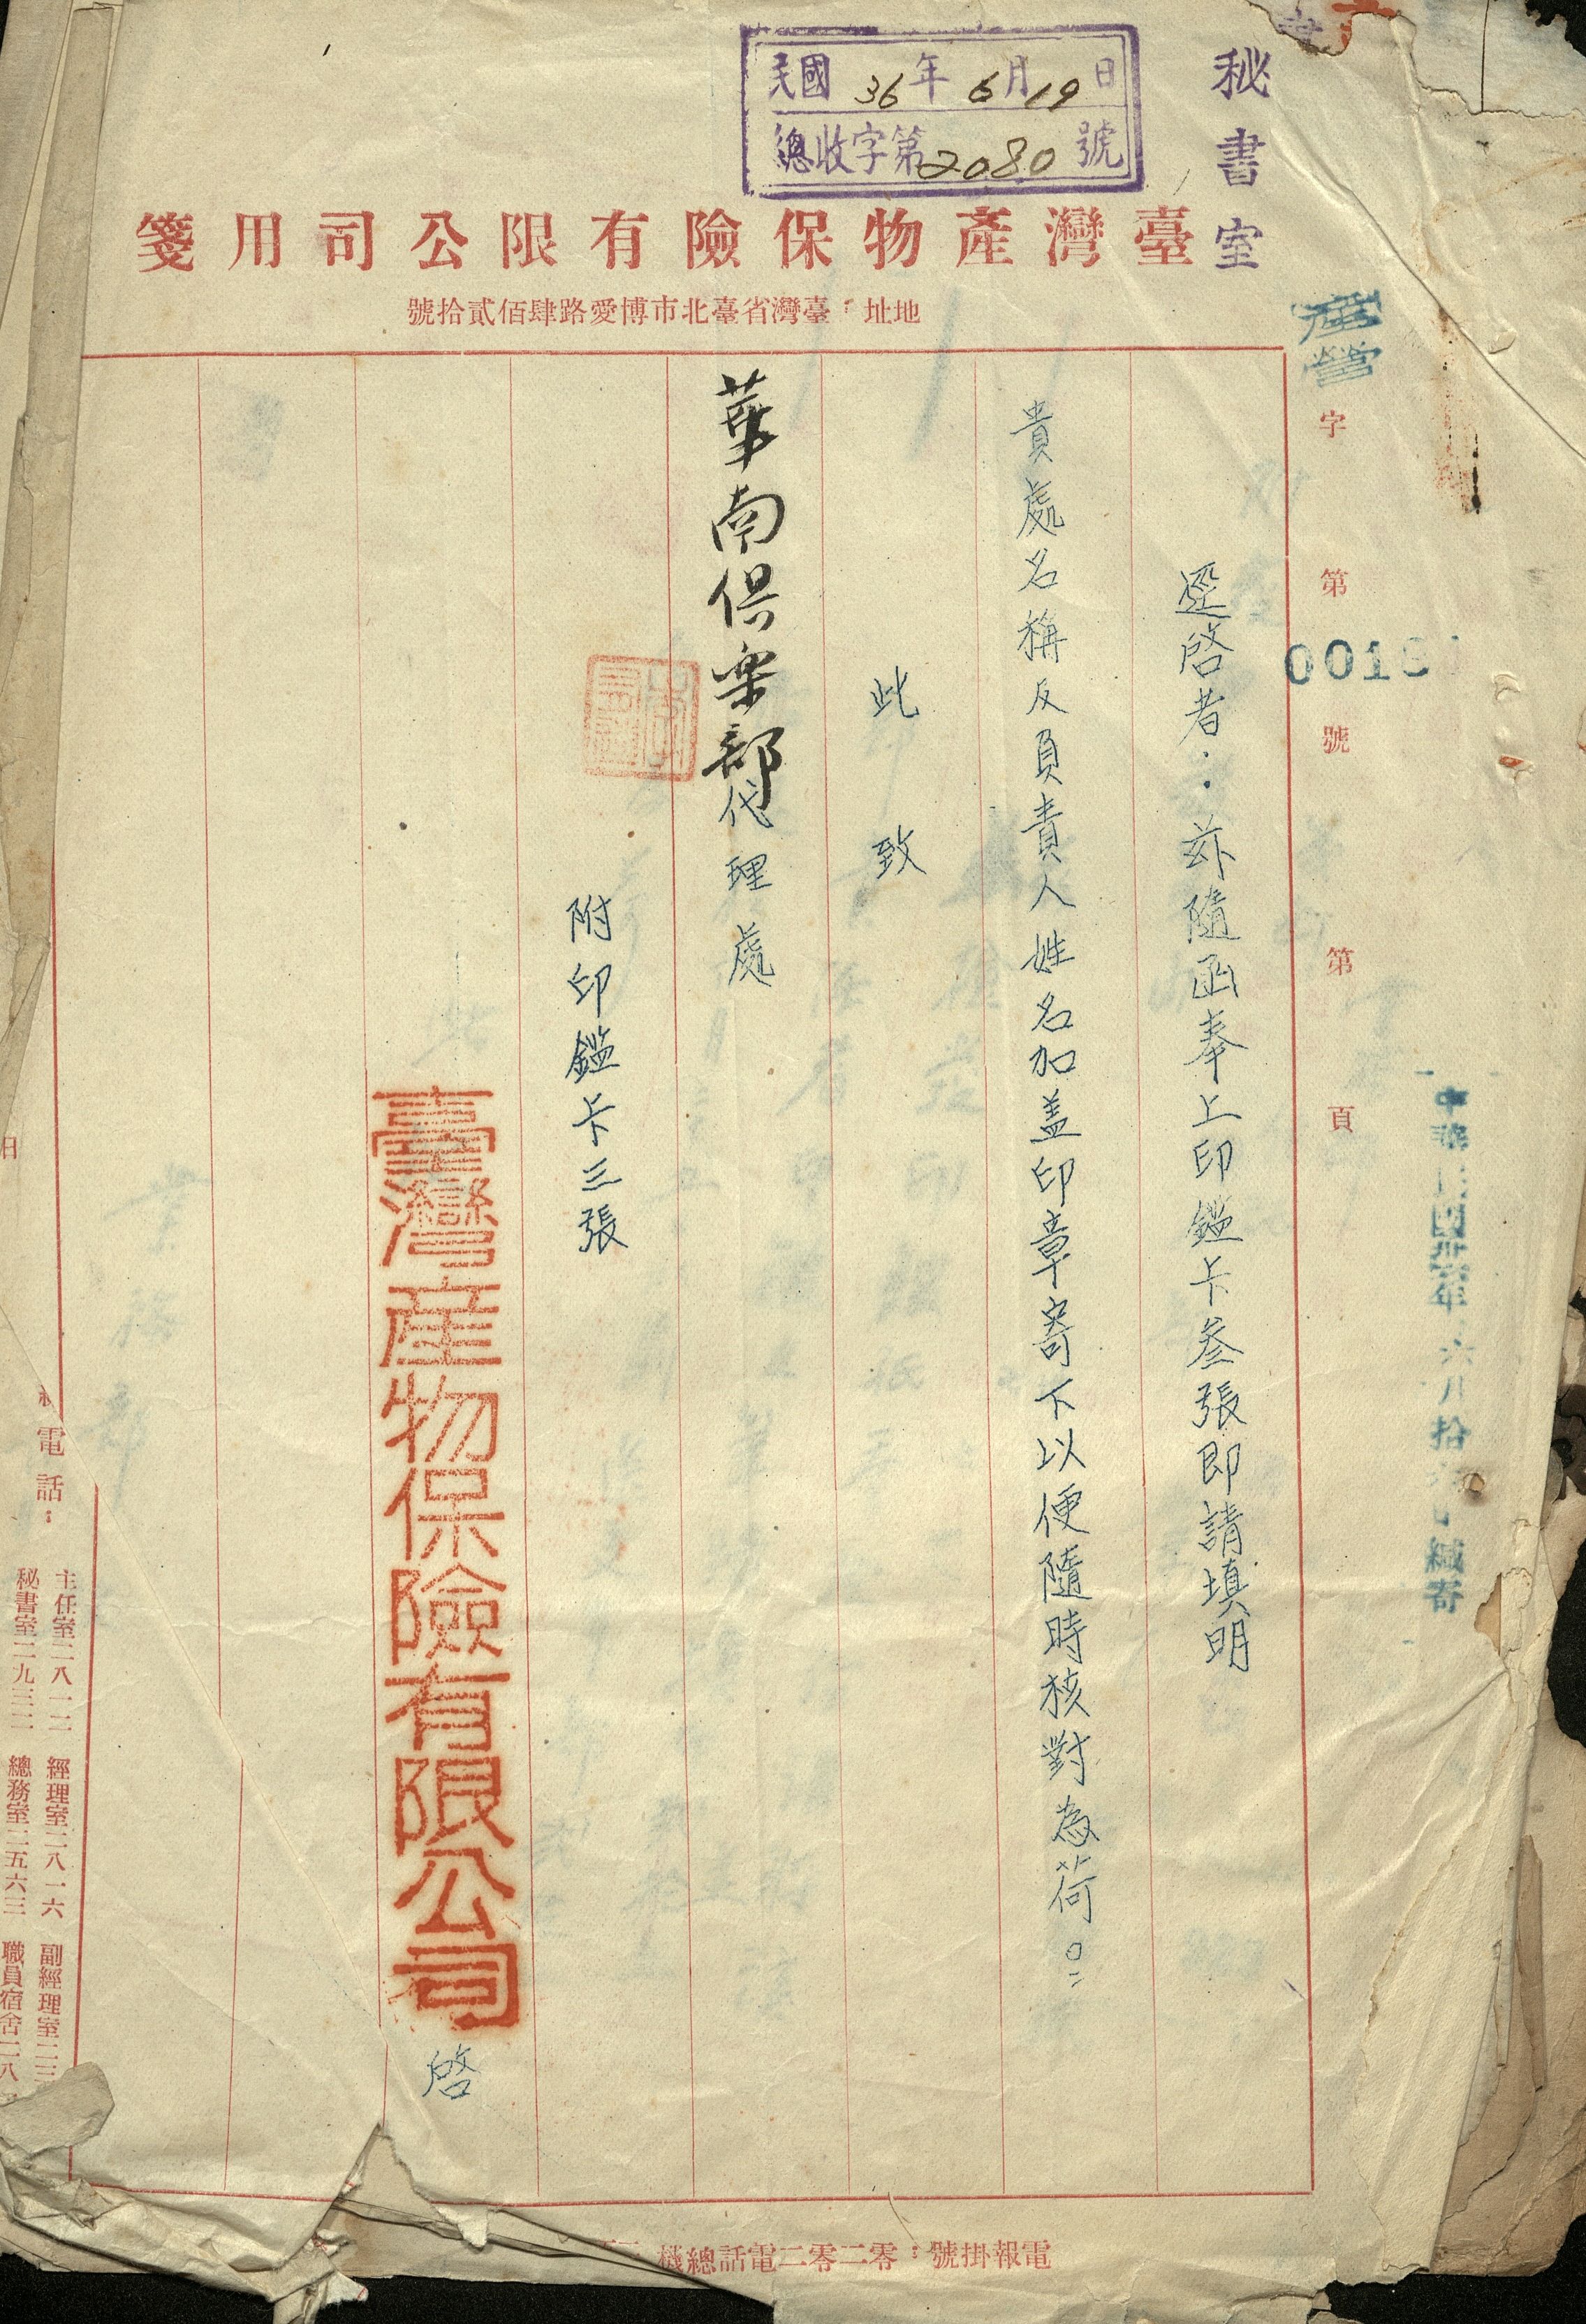 秘書室
民國36年6月19日
總收字第2080號
臺灣產物保險有限公司用箋
地址:臺灣省臺北市博愛路肆佰貳拾號
產營
字第號第頁
中華民國卅六年六月拾日緘寄
逕啓者:茲隨函奉上印鑑卡叁張即請填明
貴處名稱及負責人姓名加盖印章寄下以便隨時核對為荷。
此致
華南俱楽部代理處
附印鑑卡三張
臺灣產物保險有限公司啓
電報掛號:零二零二電話總機
電話:
主任室二八一二 經理室二八一六 副經理室二三
秘書室二九三二 總務室二五六三 職員宿舍二八
日